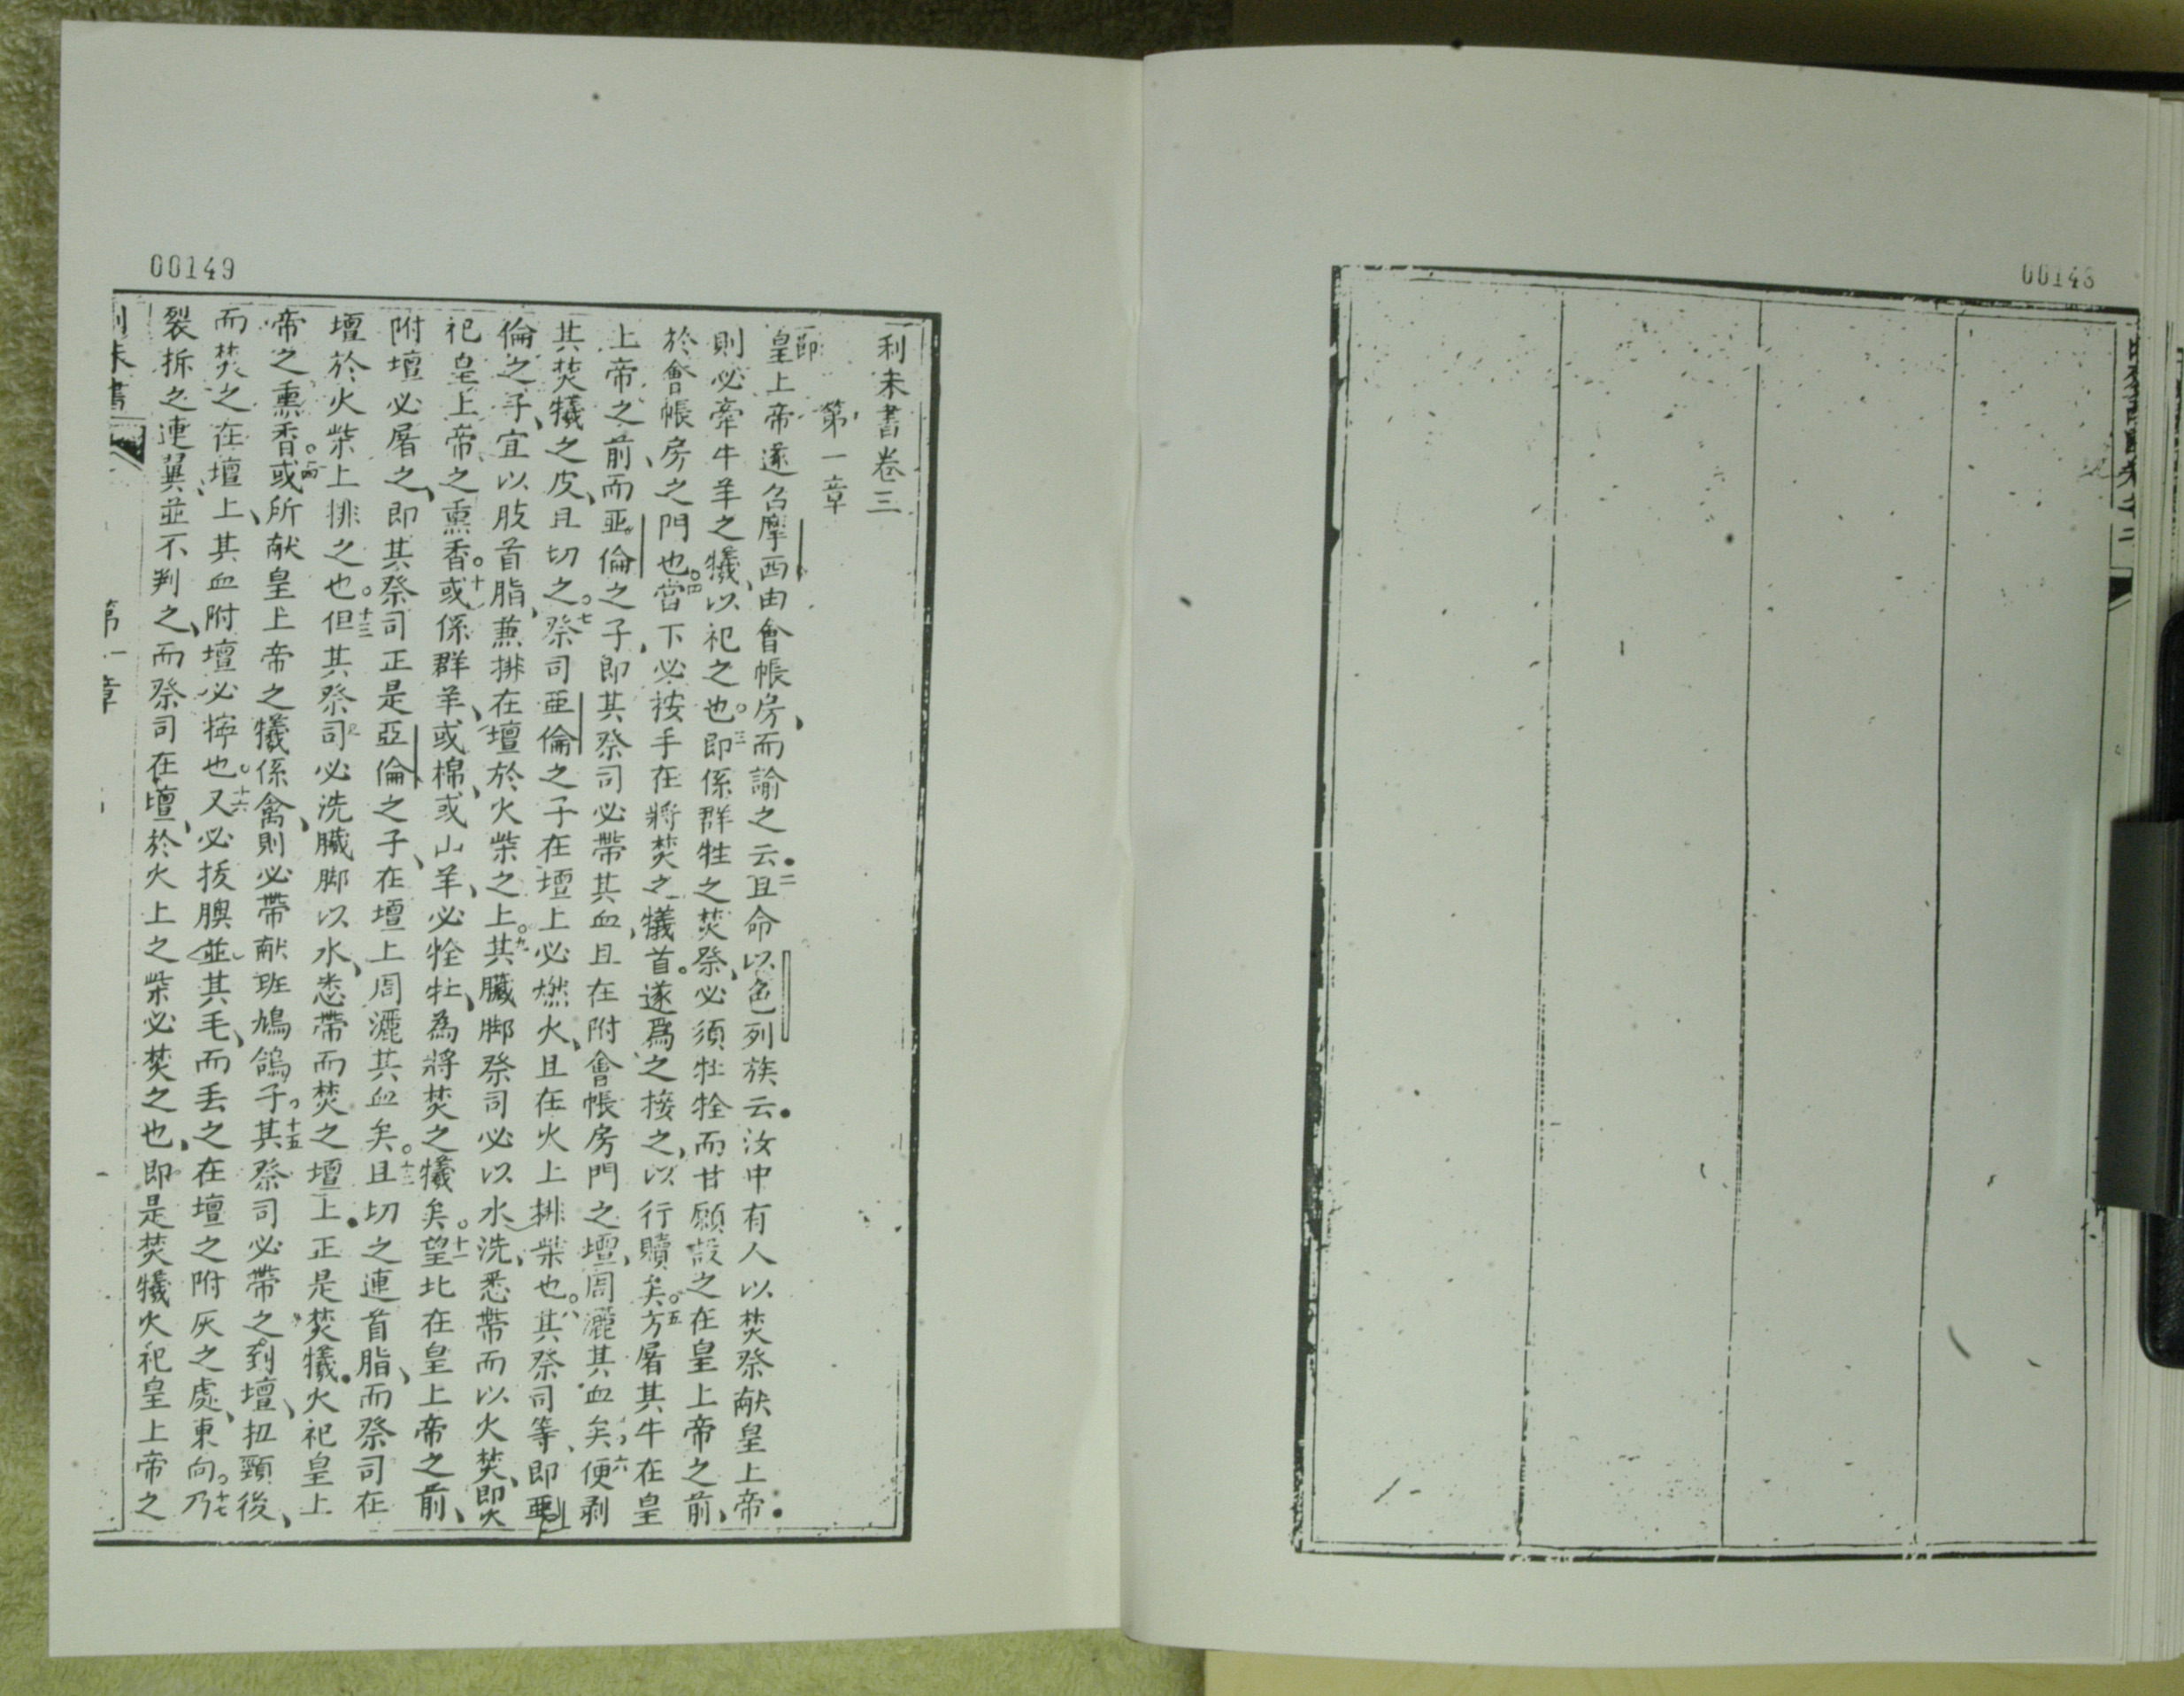 00148
00149
利未書卷三
第一章
即
皇上帝遂召摩西由會帳房、而諭之云•二且命以色列族云•汝中有人以焚祭献皇上帝•
則必牽牛羊之犧、以祀之也。三即係群牲之焚祭、必須牡牷而甘願献之在皇上帝之前、
於會帳房之門也。四當下必按手在將焚之犧首。遂爲之接之、以行贖矣。五方屠其牛在皇
上帝之前、而亞倫之子、即其祭司必帶其血、且在附會帳房門之壇、周灑其血矣、六便剥
其焚犧之皮、且切之。七祭司亞倫之子在壇上必燃火、且在火上排柴也。八其祭司等、即亞
倫之子、宜以肢首脂、兼排在壇於火柴之上。九其臟脚祭司必以水洗、悉帶而以火焚、即火
祀皇上帝、之熏香。十或係群羊、或棉、或山羊、必牷牡、為將焚之犧矣。十一望北在皇上帝之前、
附壇必屠之、即其祭司正是亞倫之子、在壇上周灑其血矣。十二且切之連首脂、而祭司在
壇於火柴上排之也。十三但其祭司必洗臟脚以水、悉帶而焚之壇上•正是焚犧•火祀皇上
帝之熏香。十四或所献皇上帝之犧係禽、則必帶献班鳩鴿子。十五其祭司必帶之到壇、扭頸後、
而焚之在壇上、其血附壇必擰也。十六又必拔腴並其毛、而丢之在壇之附灰之處、東向。十七乃
裂拆之連翼、並不判之、而祭司在壇、於火上之柴必焚之也、即是焚犧火祀皇上帝之
利未書
第一章